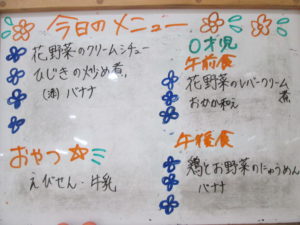 今日のメニュー
花野菜のクリームシチュー
ひじきの炒め煮
(渋) バナナ
おやつ
えびせん・牛乳
0才児
午前食
花野菜のレバークリーム煮
おかか和え
午後食
鶏とお野菜のにゅうめん
バナナ